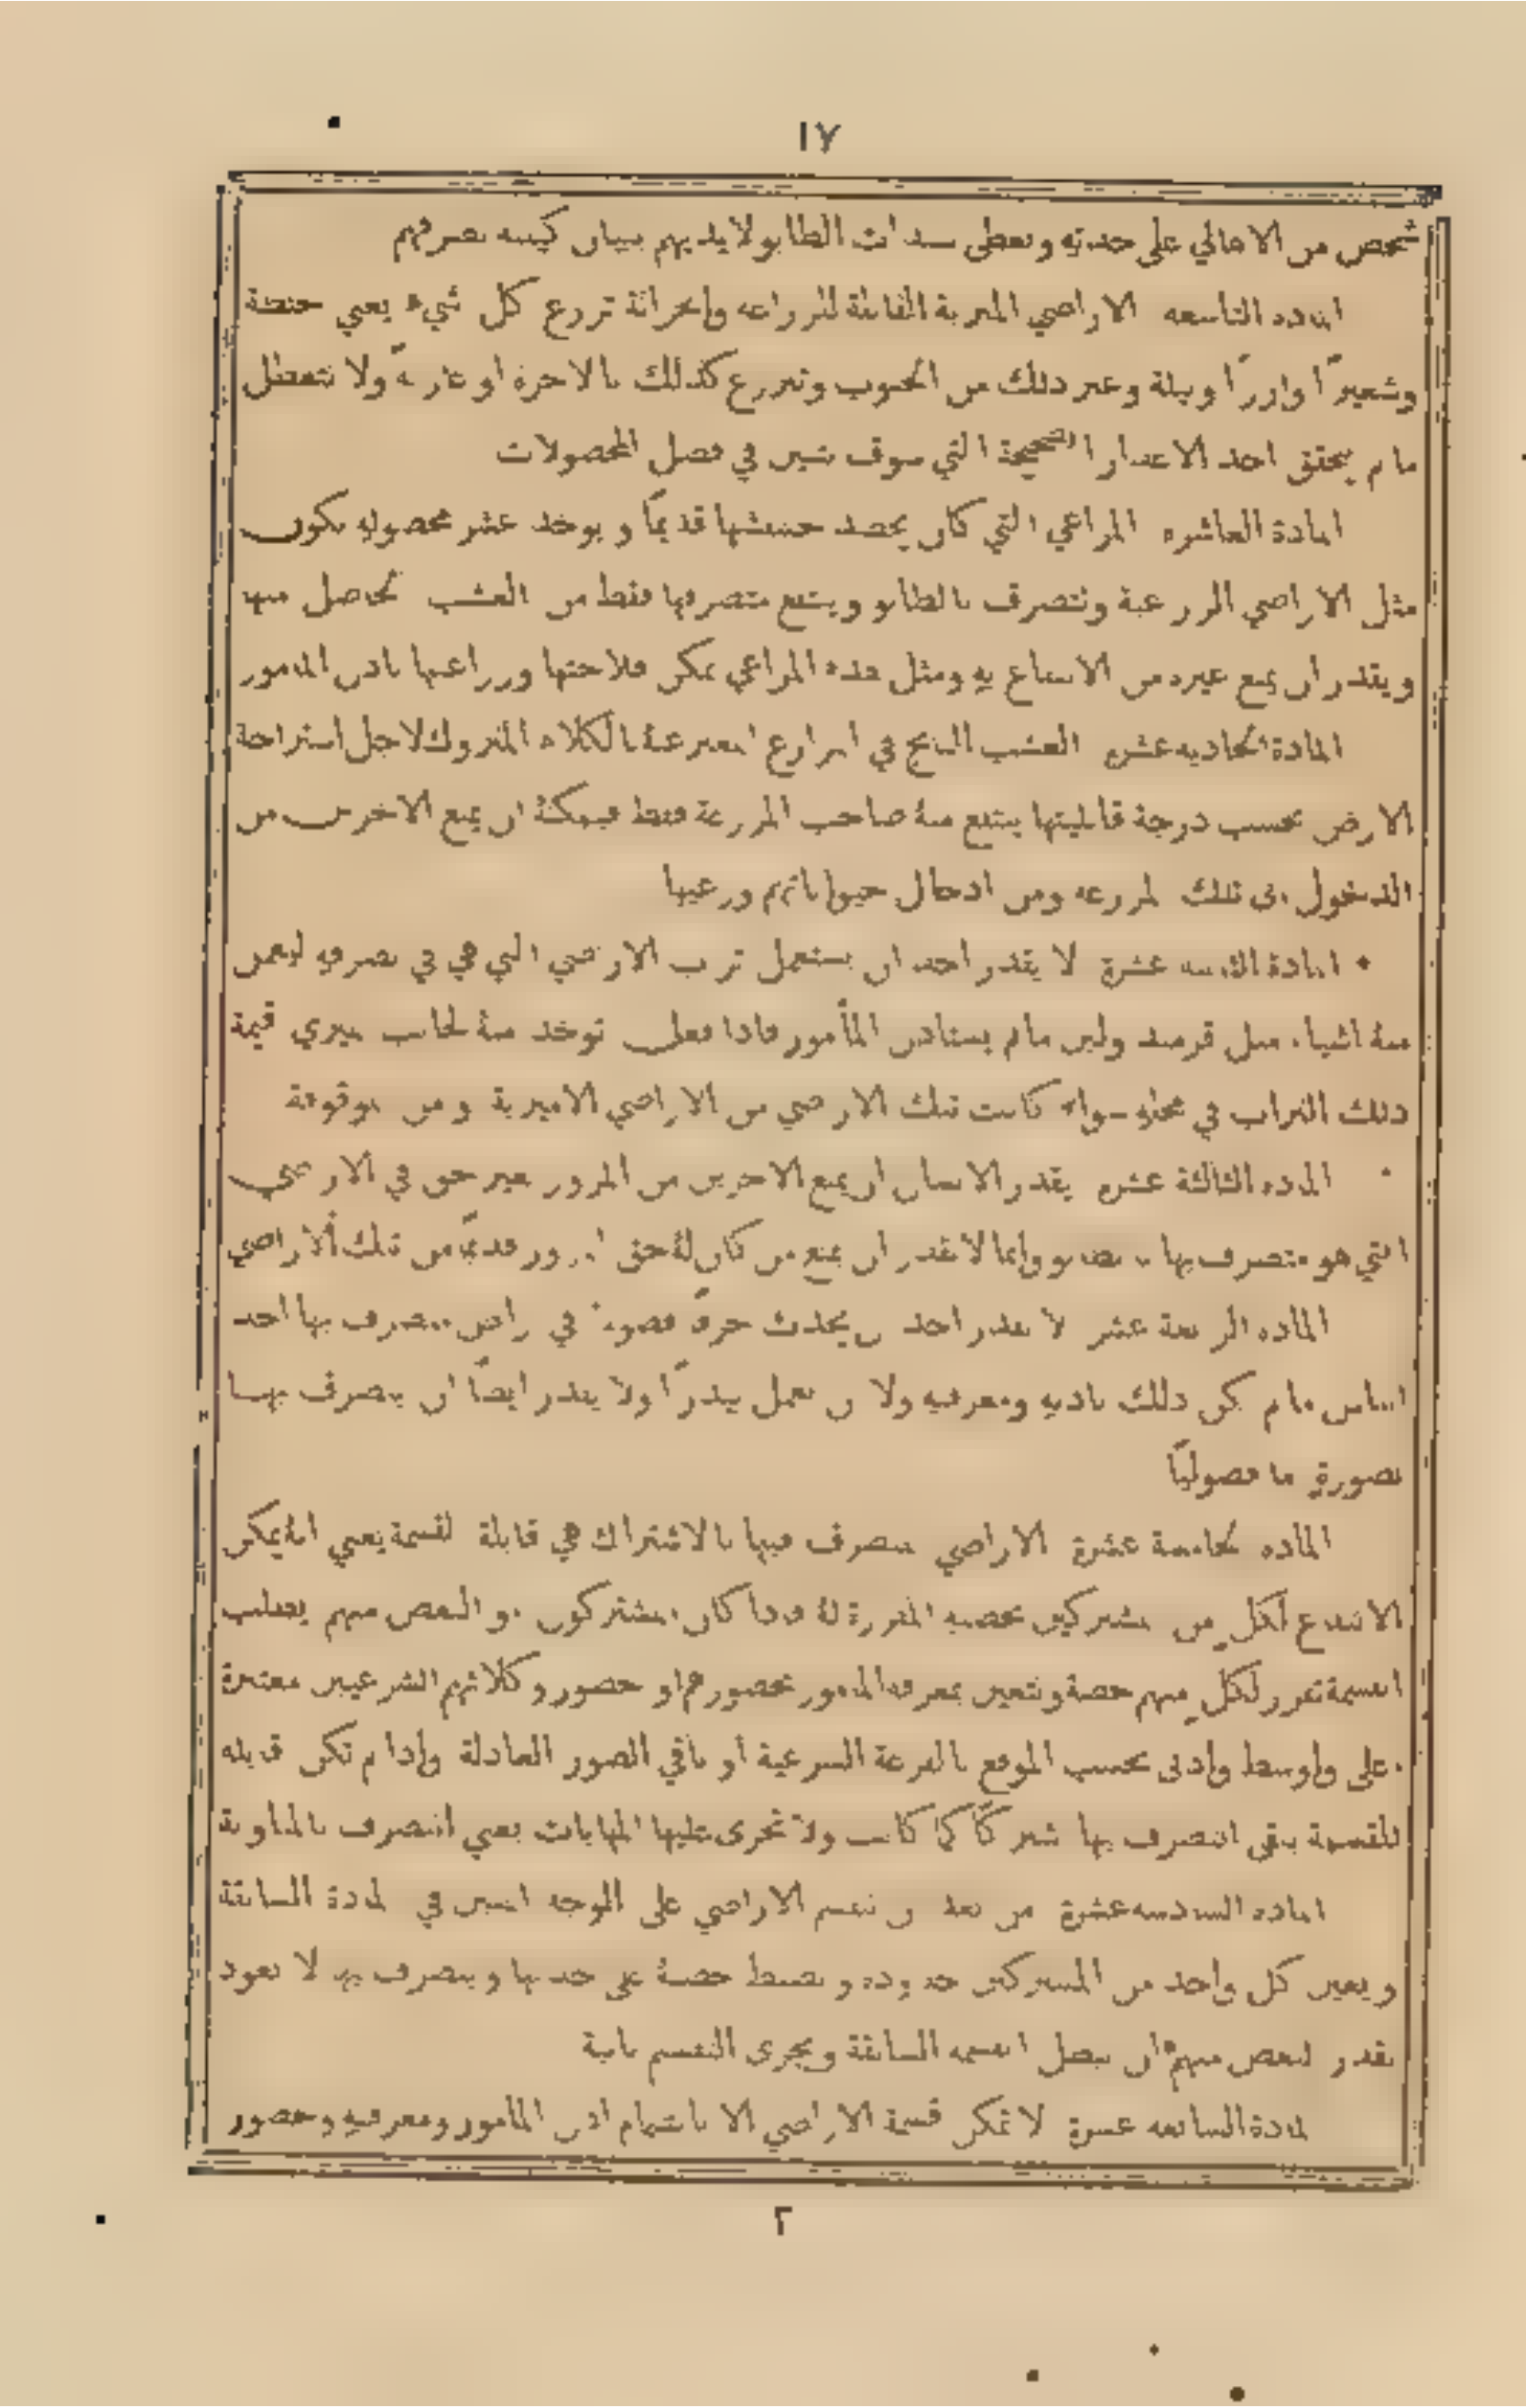 ١٧
شخص من الاهالي على حدته وتعطى سندات الطابو لايديهم ببيان كيفية تصرفهم
المادة التاسعة الاراضي الميرية القابلة للزراعة والحراثة تزرع كل شيء يعني حنطة
وشعيراً وارزاً وبيلة وغير ذلك من الحبوب وتزرع كذلك بالاجرة او عارية ولا تتعطل
ما لم يتحقق احد الاعذار الصحيحة التي سوف تبين في فصل المحصولات
المادة العاشرة المراعي التي كان يحصد حشيشها قديماً ويوخذ عشر محصوله تكون
مثل الاراضي المزرعية وتتصرف بالطابو وينتفع متصرفها فقط من العشب الحاصل منها
ويقدر ان يمنع غيره من الانتفاع به ومثل هذه المراعي يمكن فلاحتها وزراعتها باذن المامور
المادة الحادية عشرة العشب النابج في المزارع المعبر عنهُ بالكلاء المتروك لاجل استراحة
الارض بحسب درجة قابليتها ينتفع منهُ صاحب المزرعة فقط فيمكنهُ ان يمنع الاخرين من
الدخول الى تلك المزرعة ومن ادخال حيواناتهم ورعيها
المادة الثانية عشرة لا يقدر احد ان يستعمل تراب الاراضي التي هي في تصرفه ليعمل
منهُ اشياء مثل قرميد ولبن ما لم يستاذن المأمور فاذا فعل توخذ منهُ لجانب الميري قيمة
ذلك التراب في محله سواء كانت تلك الاراضي من الاراضي الاميرية ومن الموقوفة
المادة الثالثة عشرة يقدر الانسان ان يمنع الاخرين من المرور بغير حق في الاراضي
التي هو متصرف بها بالطابو وانما لا يقدر ان يمنع من كان لهُ حق المرور قديماً من تلك الاراضي
المادة الرابعة عشر لا يقدر احد ان يحدث حرقاً فصولياً في اراض متصرف بها احد
الناس ما لم يكن ذلك باذنه ومعرفته ولا ان يعمل بيدراً ولا يقدر ايضاً ان يتصرف بها
بصورةٍ ما فصولياً
المادة الخامسة عشرة الاراضي المتصرف فيها بالاشتراك هي قابلة القسمة يعني انهُ يمكن
الانتفاع لكلٍ من المشتركين بحصته المفرزة لهُ فاذا كان المشتركون او البعض منهم يطلب
القسمة تفرز لكلٍ منهم حصة وتتعين بمعرفة المامور بحضورهم او حضور وكلائهم الشرعيين معتبرة
اعلى واوسط وادنى بحسب الموقع بالقرعة الشرعية أو باقي الصور العادلة واذا لم تكن قابلة
للقسمة يبقى التصرف بها شركاً كما كانت ولا تجرى عليها المهايات يعني التصرف بالمناوبة
المادة السادسة عشرة من بعد ان تقسم الاراضي على الوجه المبين في المادة السابقة
ويعين كل واحد من المشتركين حدوده ويضبط حصتهُ على حدتها ويتصرف بها لا يعود
يقدر البعض منهم ان يبطل القسمة السابقة ويجرى التقسيم ثانية
المادة السابعة عشرة لا تمكن قسمة الاراضي الا باستحصال اذن المأمور ومعرفته وحضور
٢